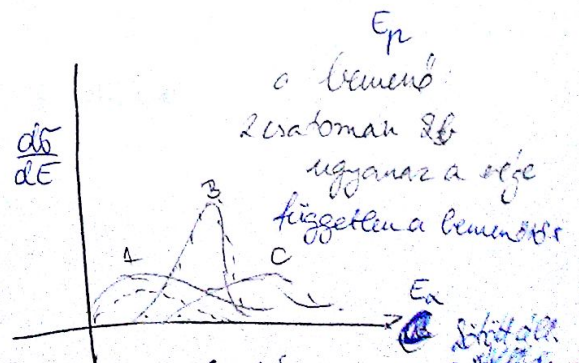 E_p
a bemenő
2 csatornán
ugyanaz a vége
független a bemenőtől
dσ
dE
B
A
C
E_α